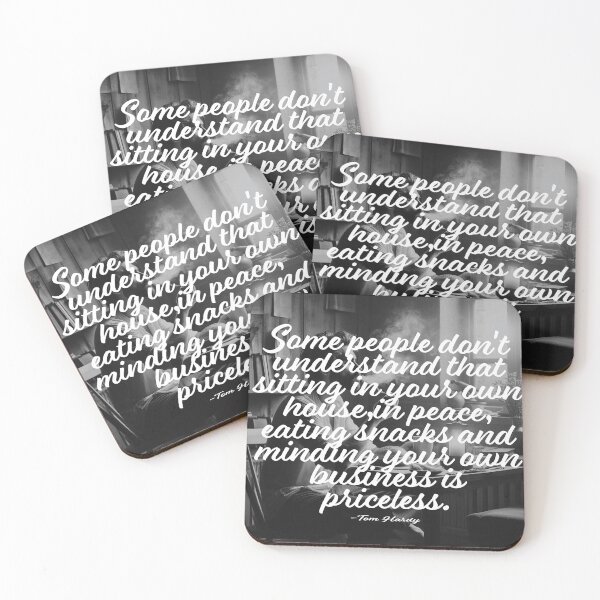 Some people don't
understand that
sitting in your
house,in peace
eating snacks
Some people don't
understand that
sitting in your own
house,in peace,
eating snacks and
minding your own
Some people don't
understand that
sitting in your own
house,in peace,
eating snacks and
minding
business
-Tom
Some people don't
understand that
sitting in your own
house,in peace,
eating snacks and
minding your own
business is
priceless.
-Tom Hardy